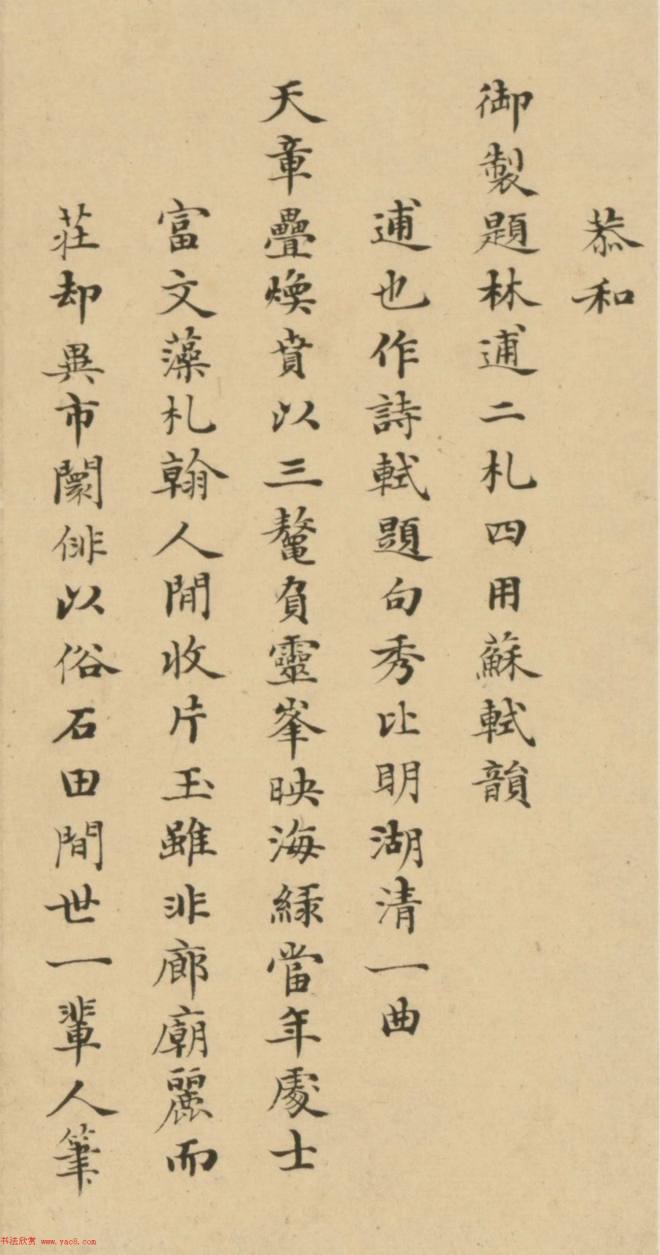 恭和
御製題林逋二札四用蘇軾韻
逋也作詩軾題句秀比明湖清一曲
天章疊煥賁以三鼇負靈峯映海綠當年處士
富文藻札翰人間收片玉雖非廊廟麗而
莊却異市闤俳以俗石田間世一輩人筆
书法欣赏 www.yac8.com